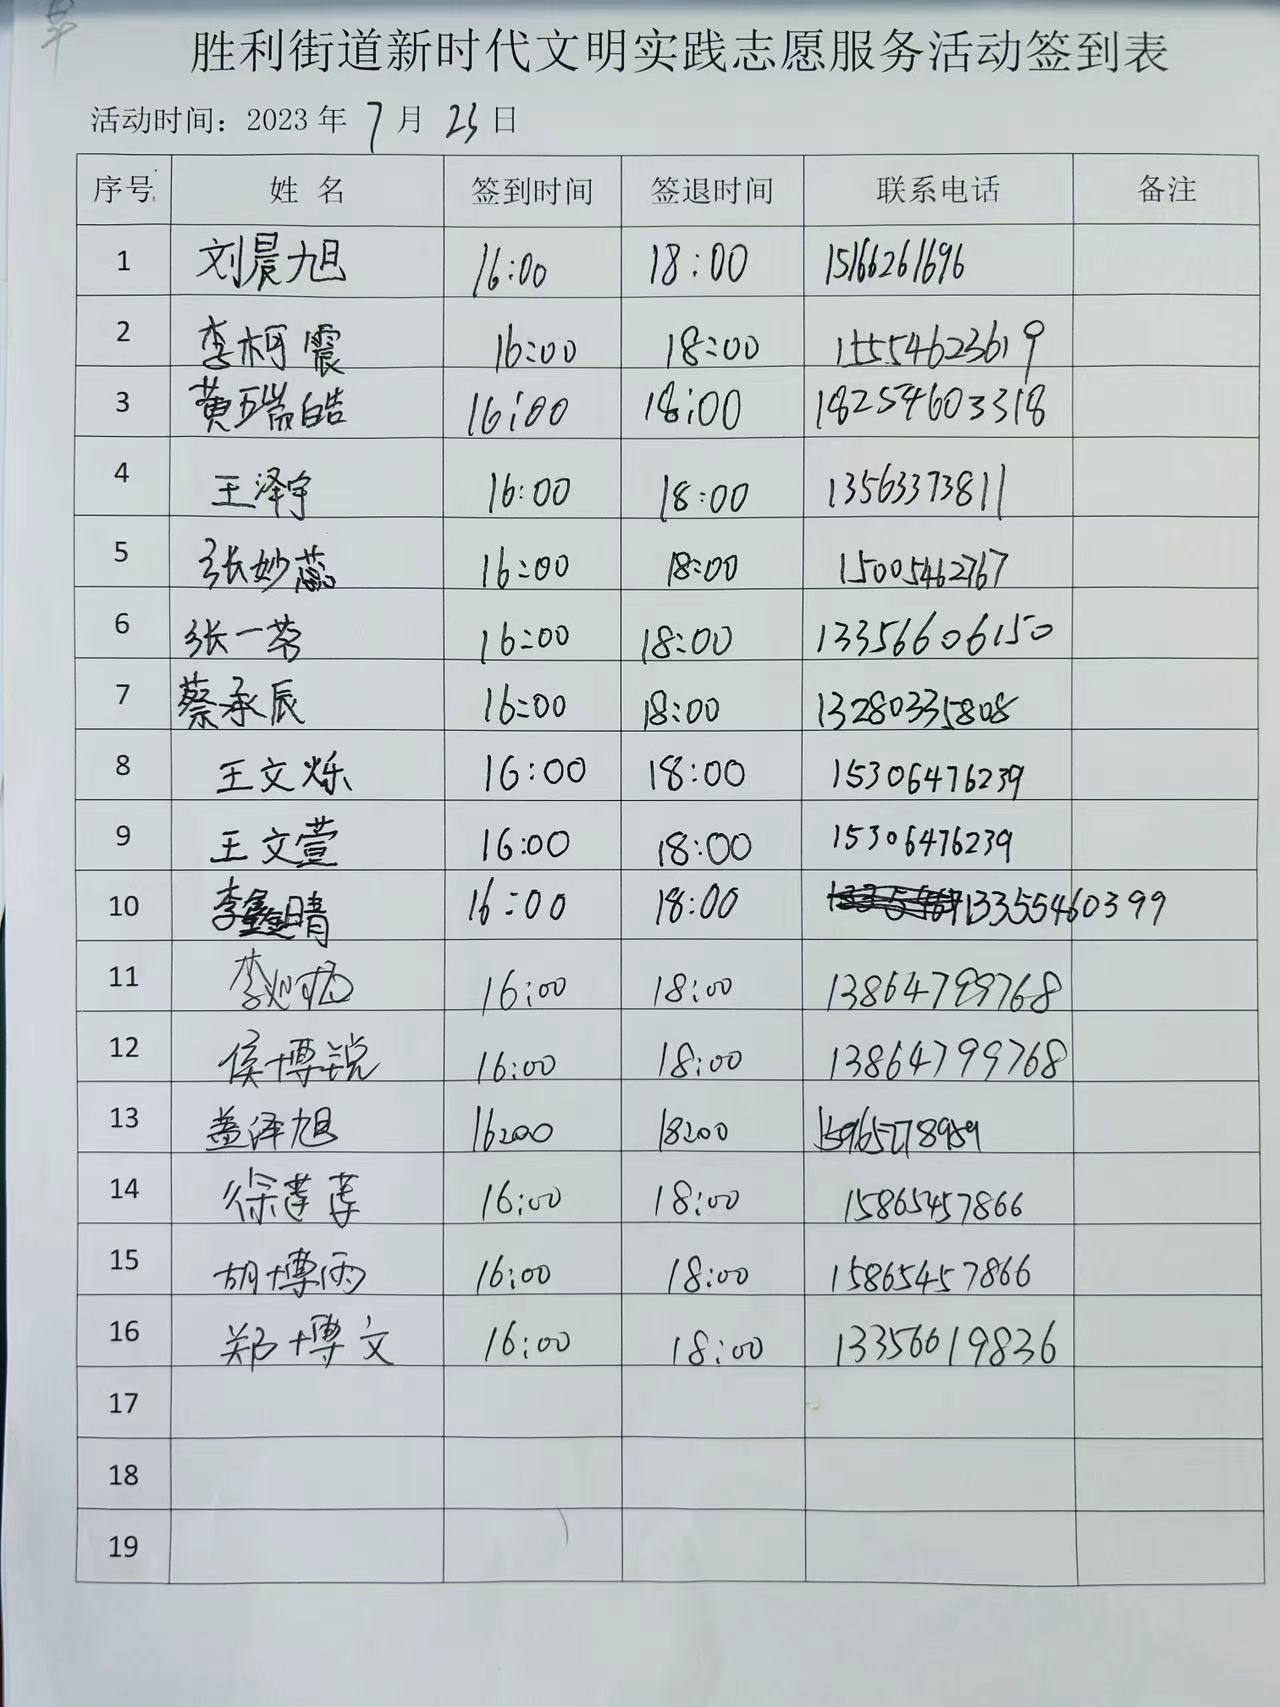 胜利街道新时代文明实践志愿服务活动签到表
活动时间：2023 年 7 月 23 日
序号 姓 名 签到时间 签退时间 联系电话 备注
1 刘晨旭 16:00 18:00 15166261696
2 李柯震 16:00 18:00 15554623619
3 黄瑞皓 16:00 18:00 18254603318
4 王泽宇 16:00 18:00 13563373811
5 张妙蕊 16:00 18:00 15005462767
6 张一茗 16:00 18:00 13356606150
7 蔡承辰 16:00 18:00 13280335808
8 王文烁 16:00 18:00 15306476239
9 王文萱 16:00 18:00 15306476239
10 李鑫晴 16:00 18:00 13355460399
11 李 16:00 18:00 13864799768
12 侯博锐 16:00 18:00 13864799768
13 盖泽旭 16:00 18:00 15965278959
14 徐莲莲 16:00 18:00 15865457866
15 胡博雨 16:00 18:00 15865457866
16 郑博文 16:00 18:00 13356019836
17
18
19